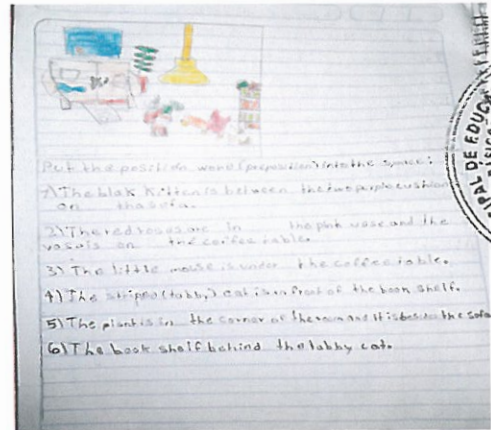 Put the position word (preposition) into the space:
1) The blak kitten is between the two purple cushion
on the sofa.
2) The red roses are in the pink vase and the
vase is on the coffee table.
3) The little mouse is under the coffee table.
4) The striped (tabby) cat is in front of the book shelf.
5) The plant is in the corner of the room and it is beside the sofa
6) The book shelf behind the tabby cat.
IPAL DE EDUCA